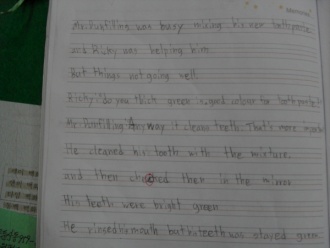 Mr. was busy mixing his new toothpaste
and Ricky was helping him.
But things not going well.
Ricky: do you think green is good colour for toothpaste?
way it cleans teeth. That's more
He cleaned his teeth with the mixture.
and then checked then in the mirror
His teeth were bright green
He rinced his mouth but his teeth was stayed green